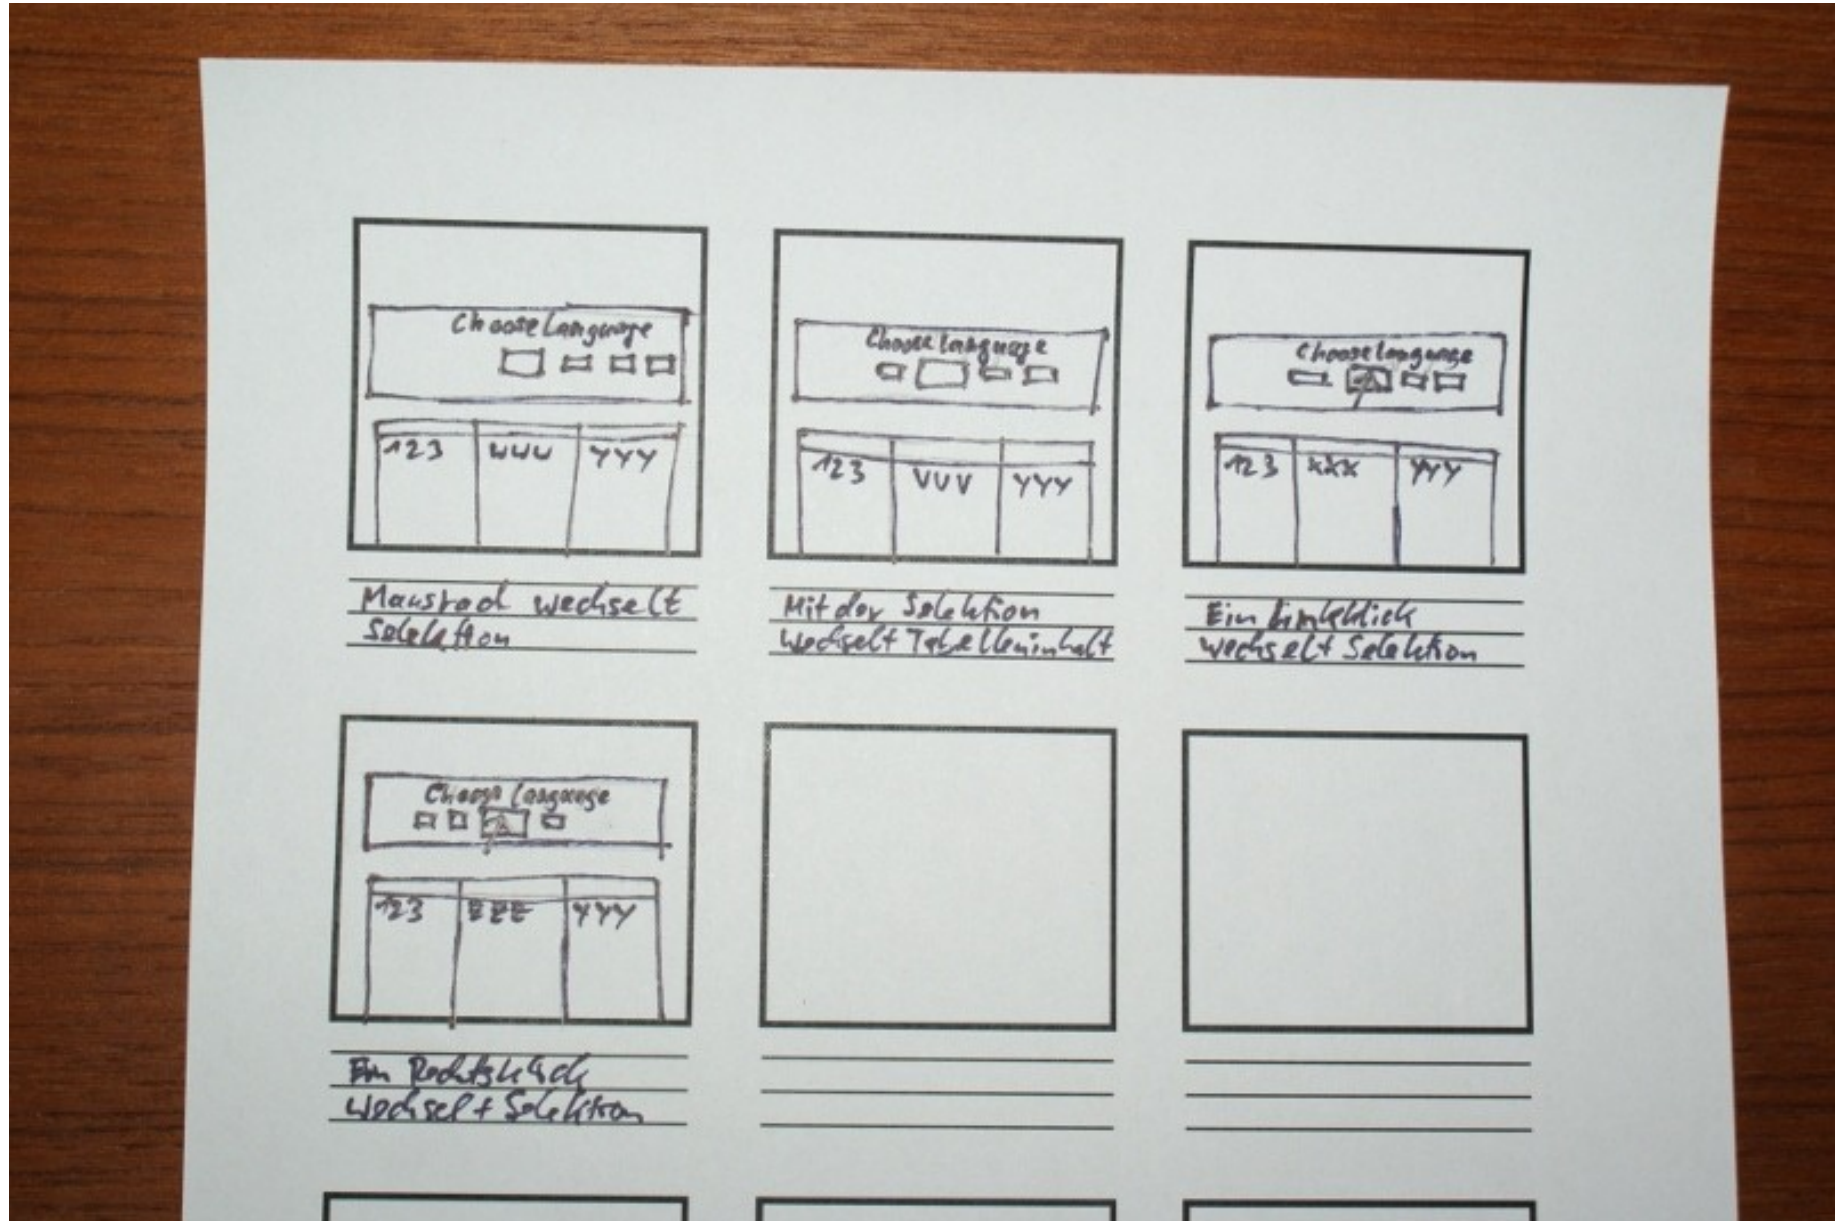 Choose Language
123 UUU YYY
Mausrad wechselt
Selektion
Choose Language
123 VUV YYY
Mit der Selektion
wechselt Tabelleninhalt
Choose Language
123 XXX YYY
Ein Linksklick
wechselt Selektion
Choose Language
123 EEE YYY
Ein Rechtsklick
wechselt Selektion